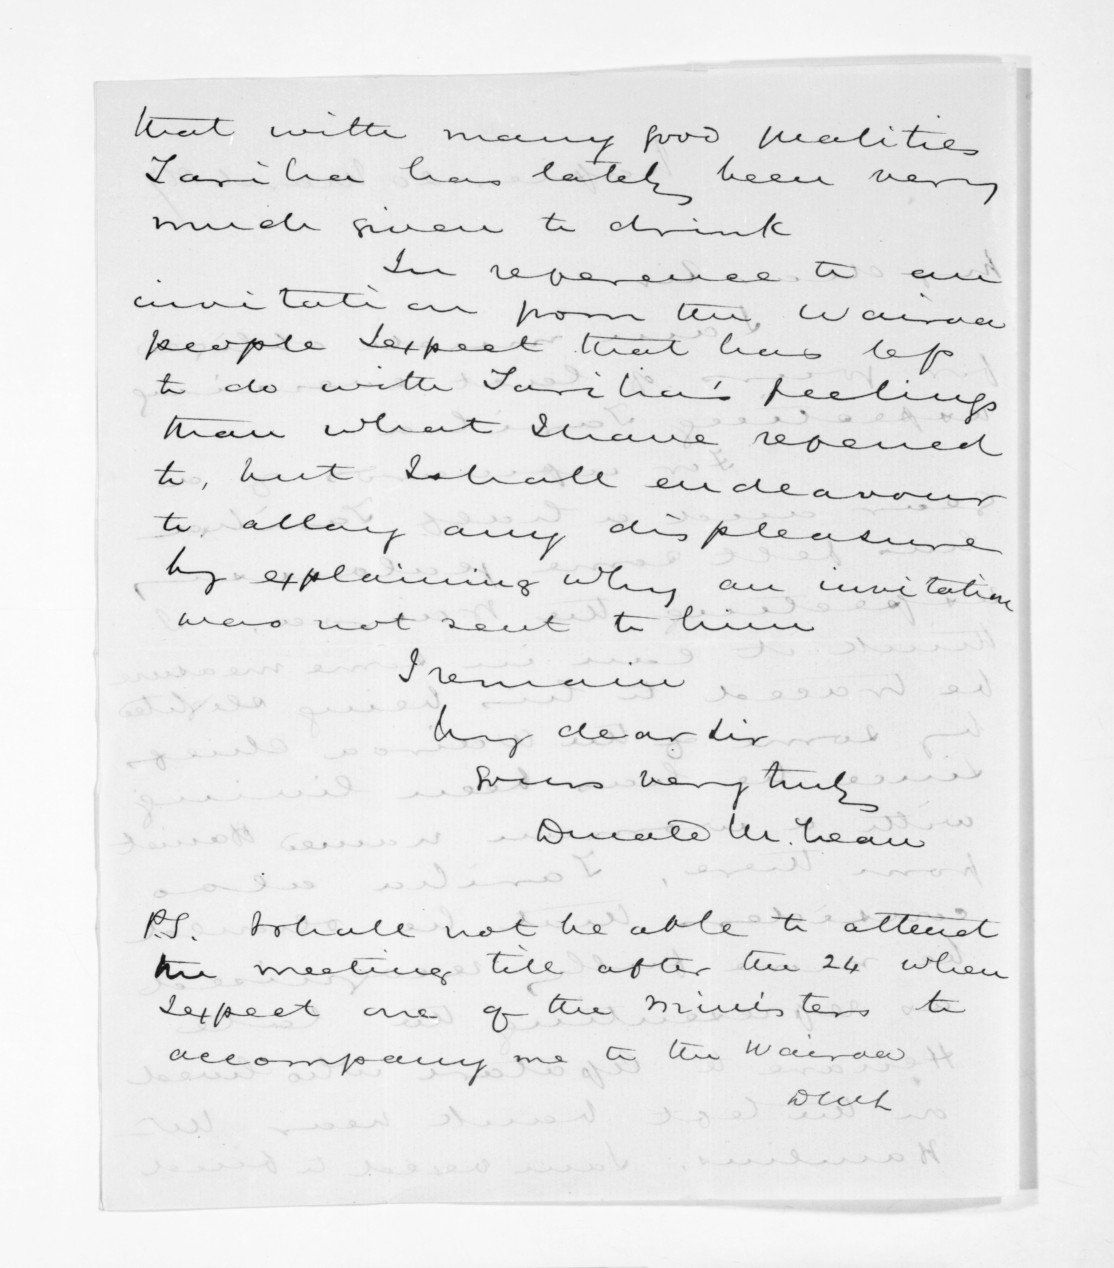 that with many good qualities
Tariha has lately been very
much given to drink
In reference to an
invitation from the Wairoa
people I expect that has less
to do with Tariha's feelings
than what I have referred
to, but I shall endeavour
to allay any displeasure
by explaining why an invitation
was not sent to him
I remain
My dear Sir
yours very truly
Donald McLean
P.S. I shall not be able to attend
the meeting till after the 24 when
I expect one of the Ministers to
accompany me to the Wairoa
DMcL